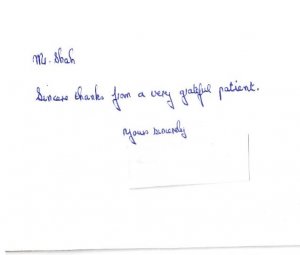 Mr. Shah
Sincere thanks from a very grateful patient.
Yours sincerely